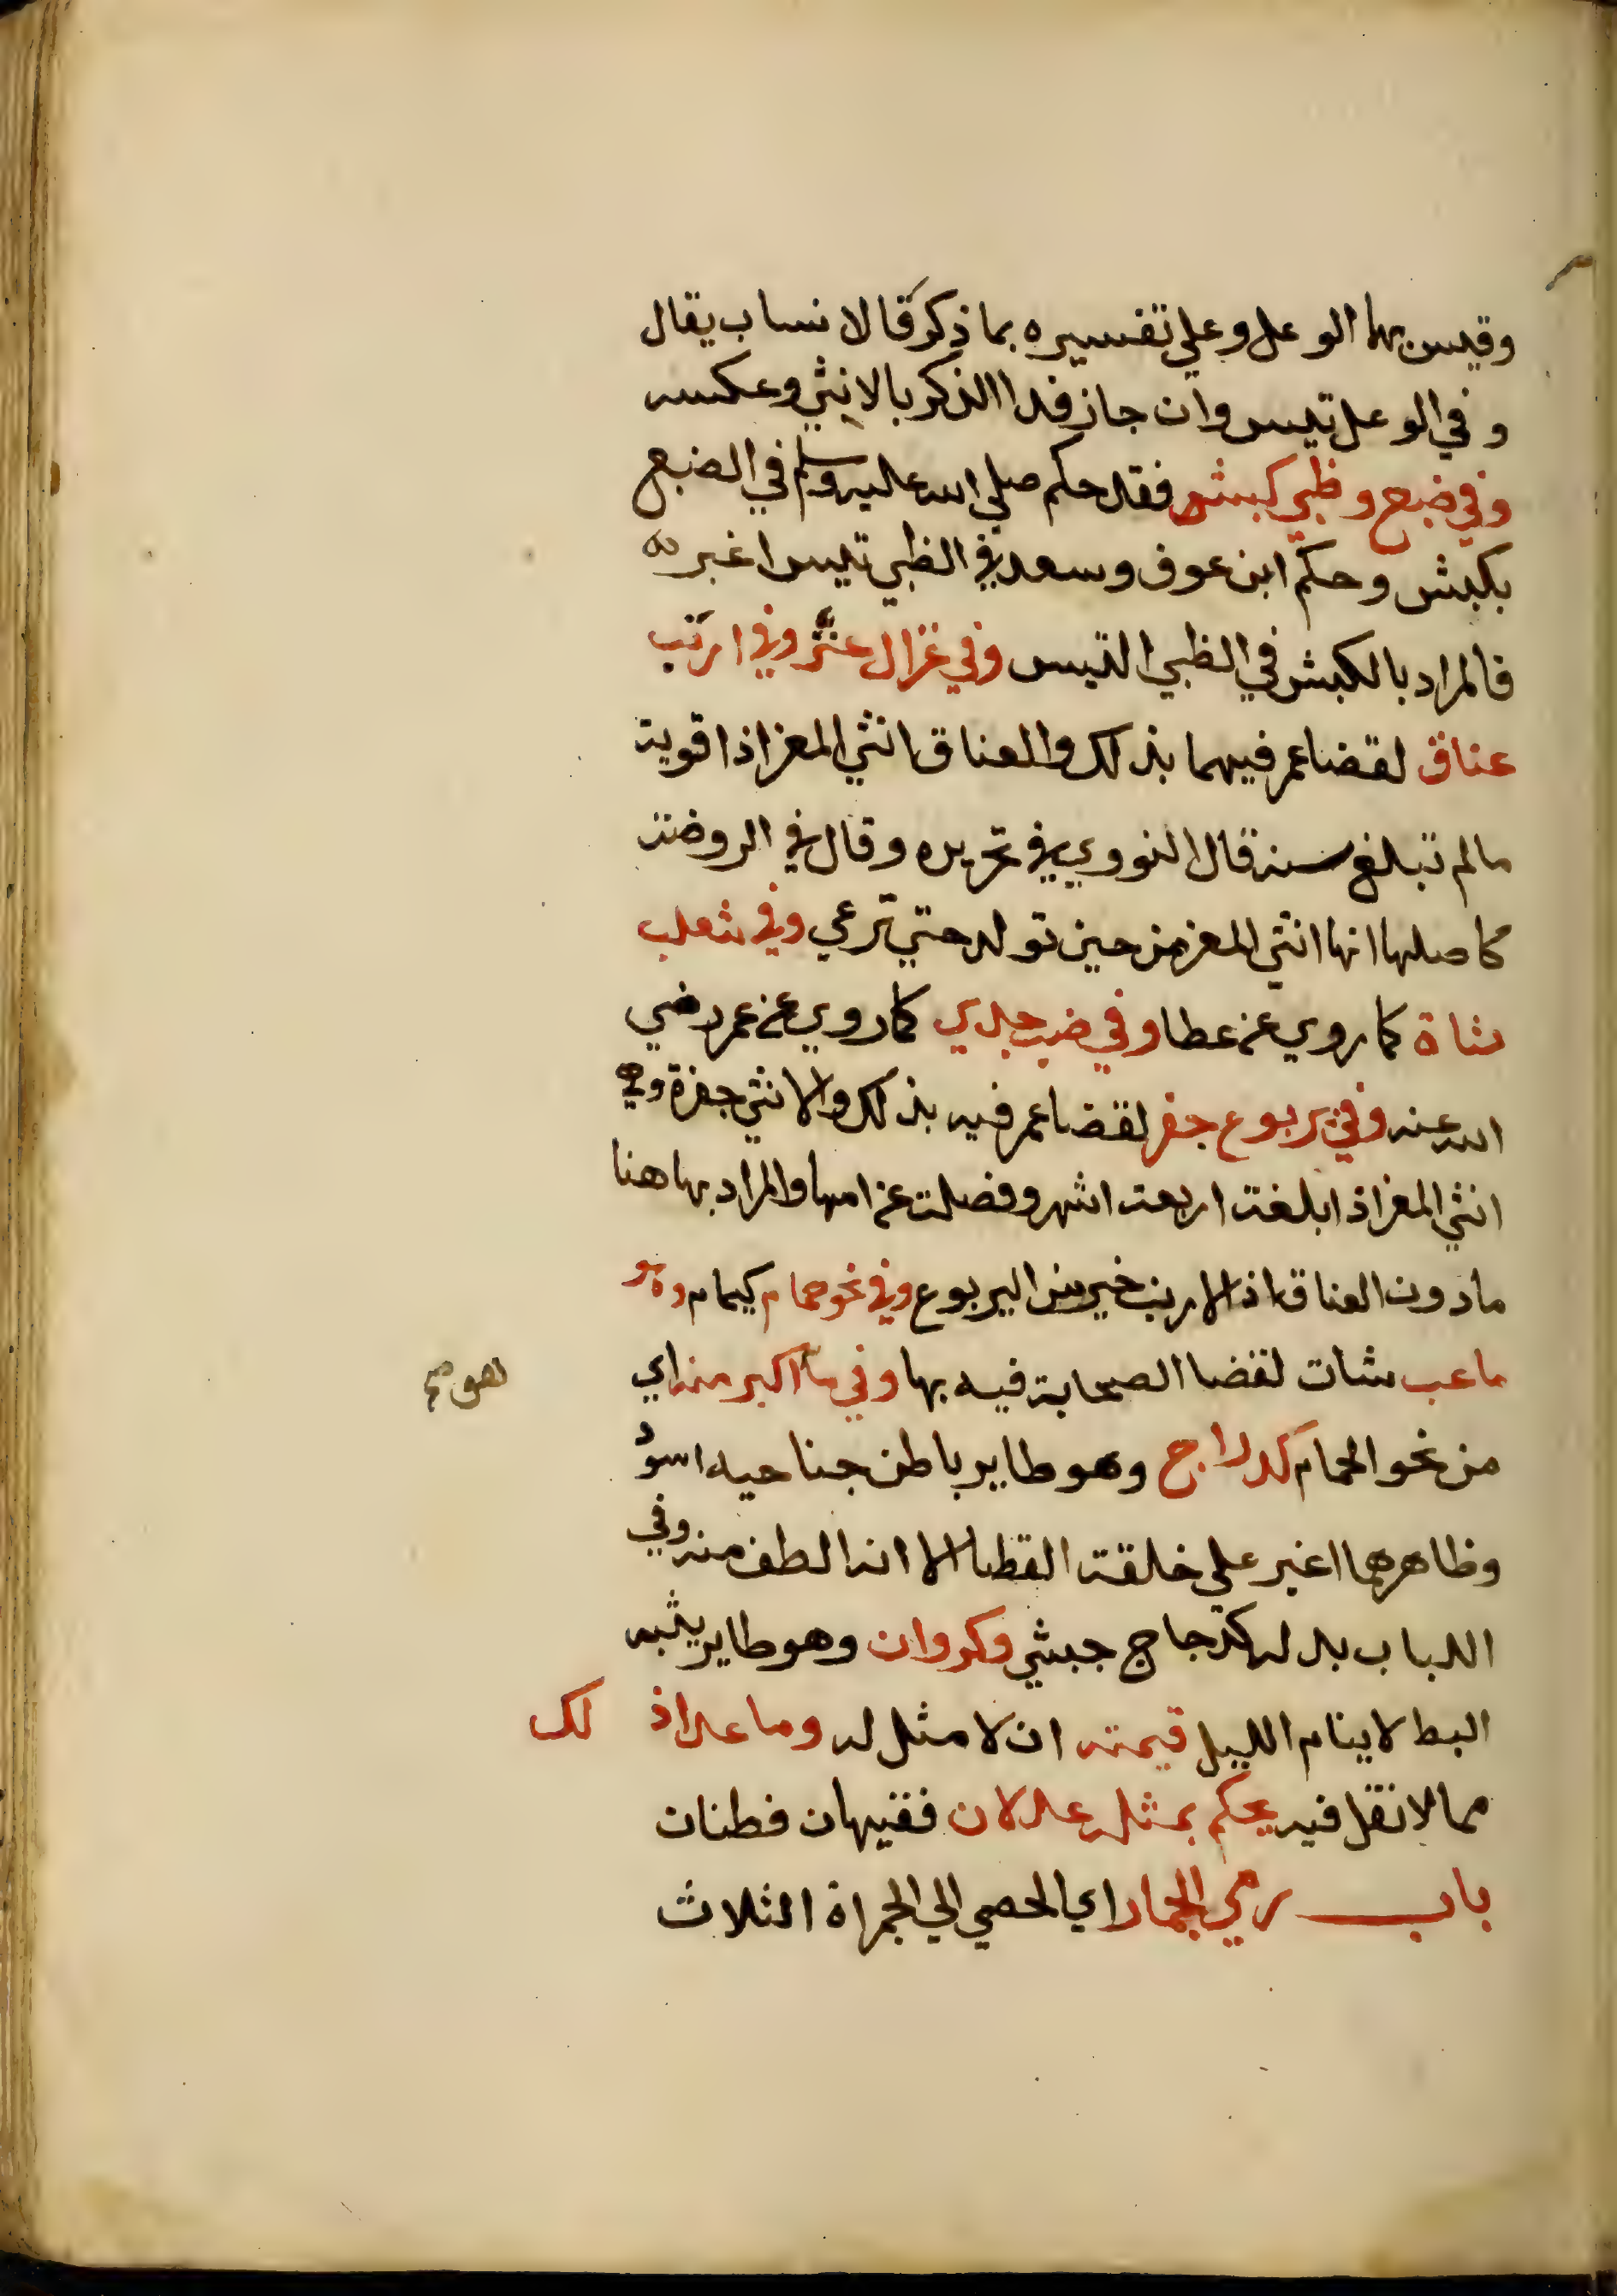 وقيس بهما الوعل وعلي تفسيره بما ذكر قالا نساب يقال
وفي الوعل تيس وان جاز فدا الذكر بالانثي وعكسه
وفي ضبع وظبي كبش فقد حكم صلي الله عليه وسلم في الضبع
بكبش وحكم ابن عوف وسعد في الظبي تيس اغبر
فالمراد بالكبش في الظبي التيس وفي غزال عنز وفي ارنب
عناق لقضا عمر فيهما بذلك والعناق انثي المعز اذا قوية
ما لم تبلغ سنة قال النووي في تحريره وقال في الروضة
كاصلها انها انثي المعز من حين تولد حتي ترعي وفي ثعلب
شاة كما روي عن عطا وفي ضب جدي كما روي عن عمر رضي
الله عنه وفي يربوع جفر لقضا عمر فيه بذلك والانثي جفرة وهي
انثي المعز اذا بلغت اربعة اشهر وفصلت عن امها والمراد بها هنا
ما دون العناق اذ الارنب خير من اليربوع وفي نحو حمام كيمام وهو
ما عب شات لقضا الصحابة فيه بها وفي ما اكبر منه اي
من نحو الحمام كدراج وهو طاير باطن جناحيه اسود
وظاهرهما اغبر علي خلقة القطا الا انه الطف منه وفي
اللباب بدله كدجاج حبشي وكروان وهو طاير يشبه
البط لا ينام الليل قيمته ان لا مثل له وما عدا ذلك
مما لا نقل فيه يحكم بمثله عدلان فقيهان فطنان
باب رمي الجمار اي الحصي الي الجمراة الثلاث